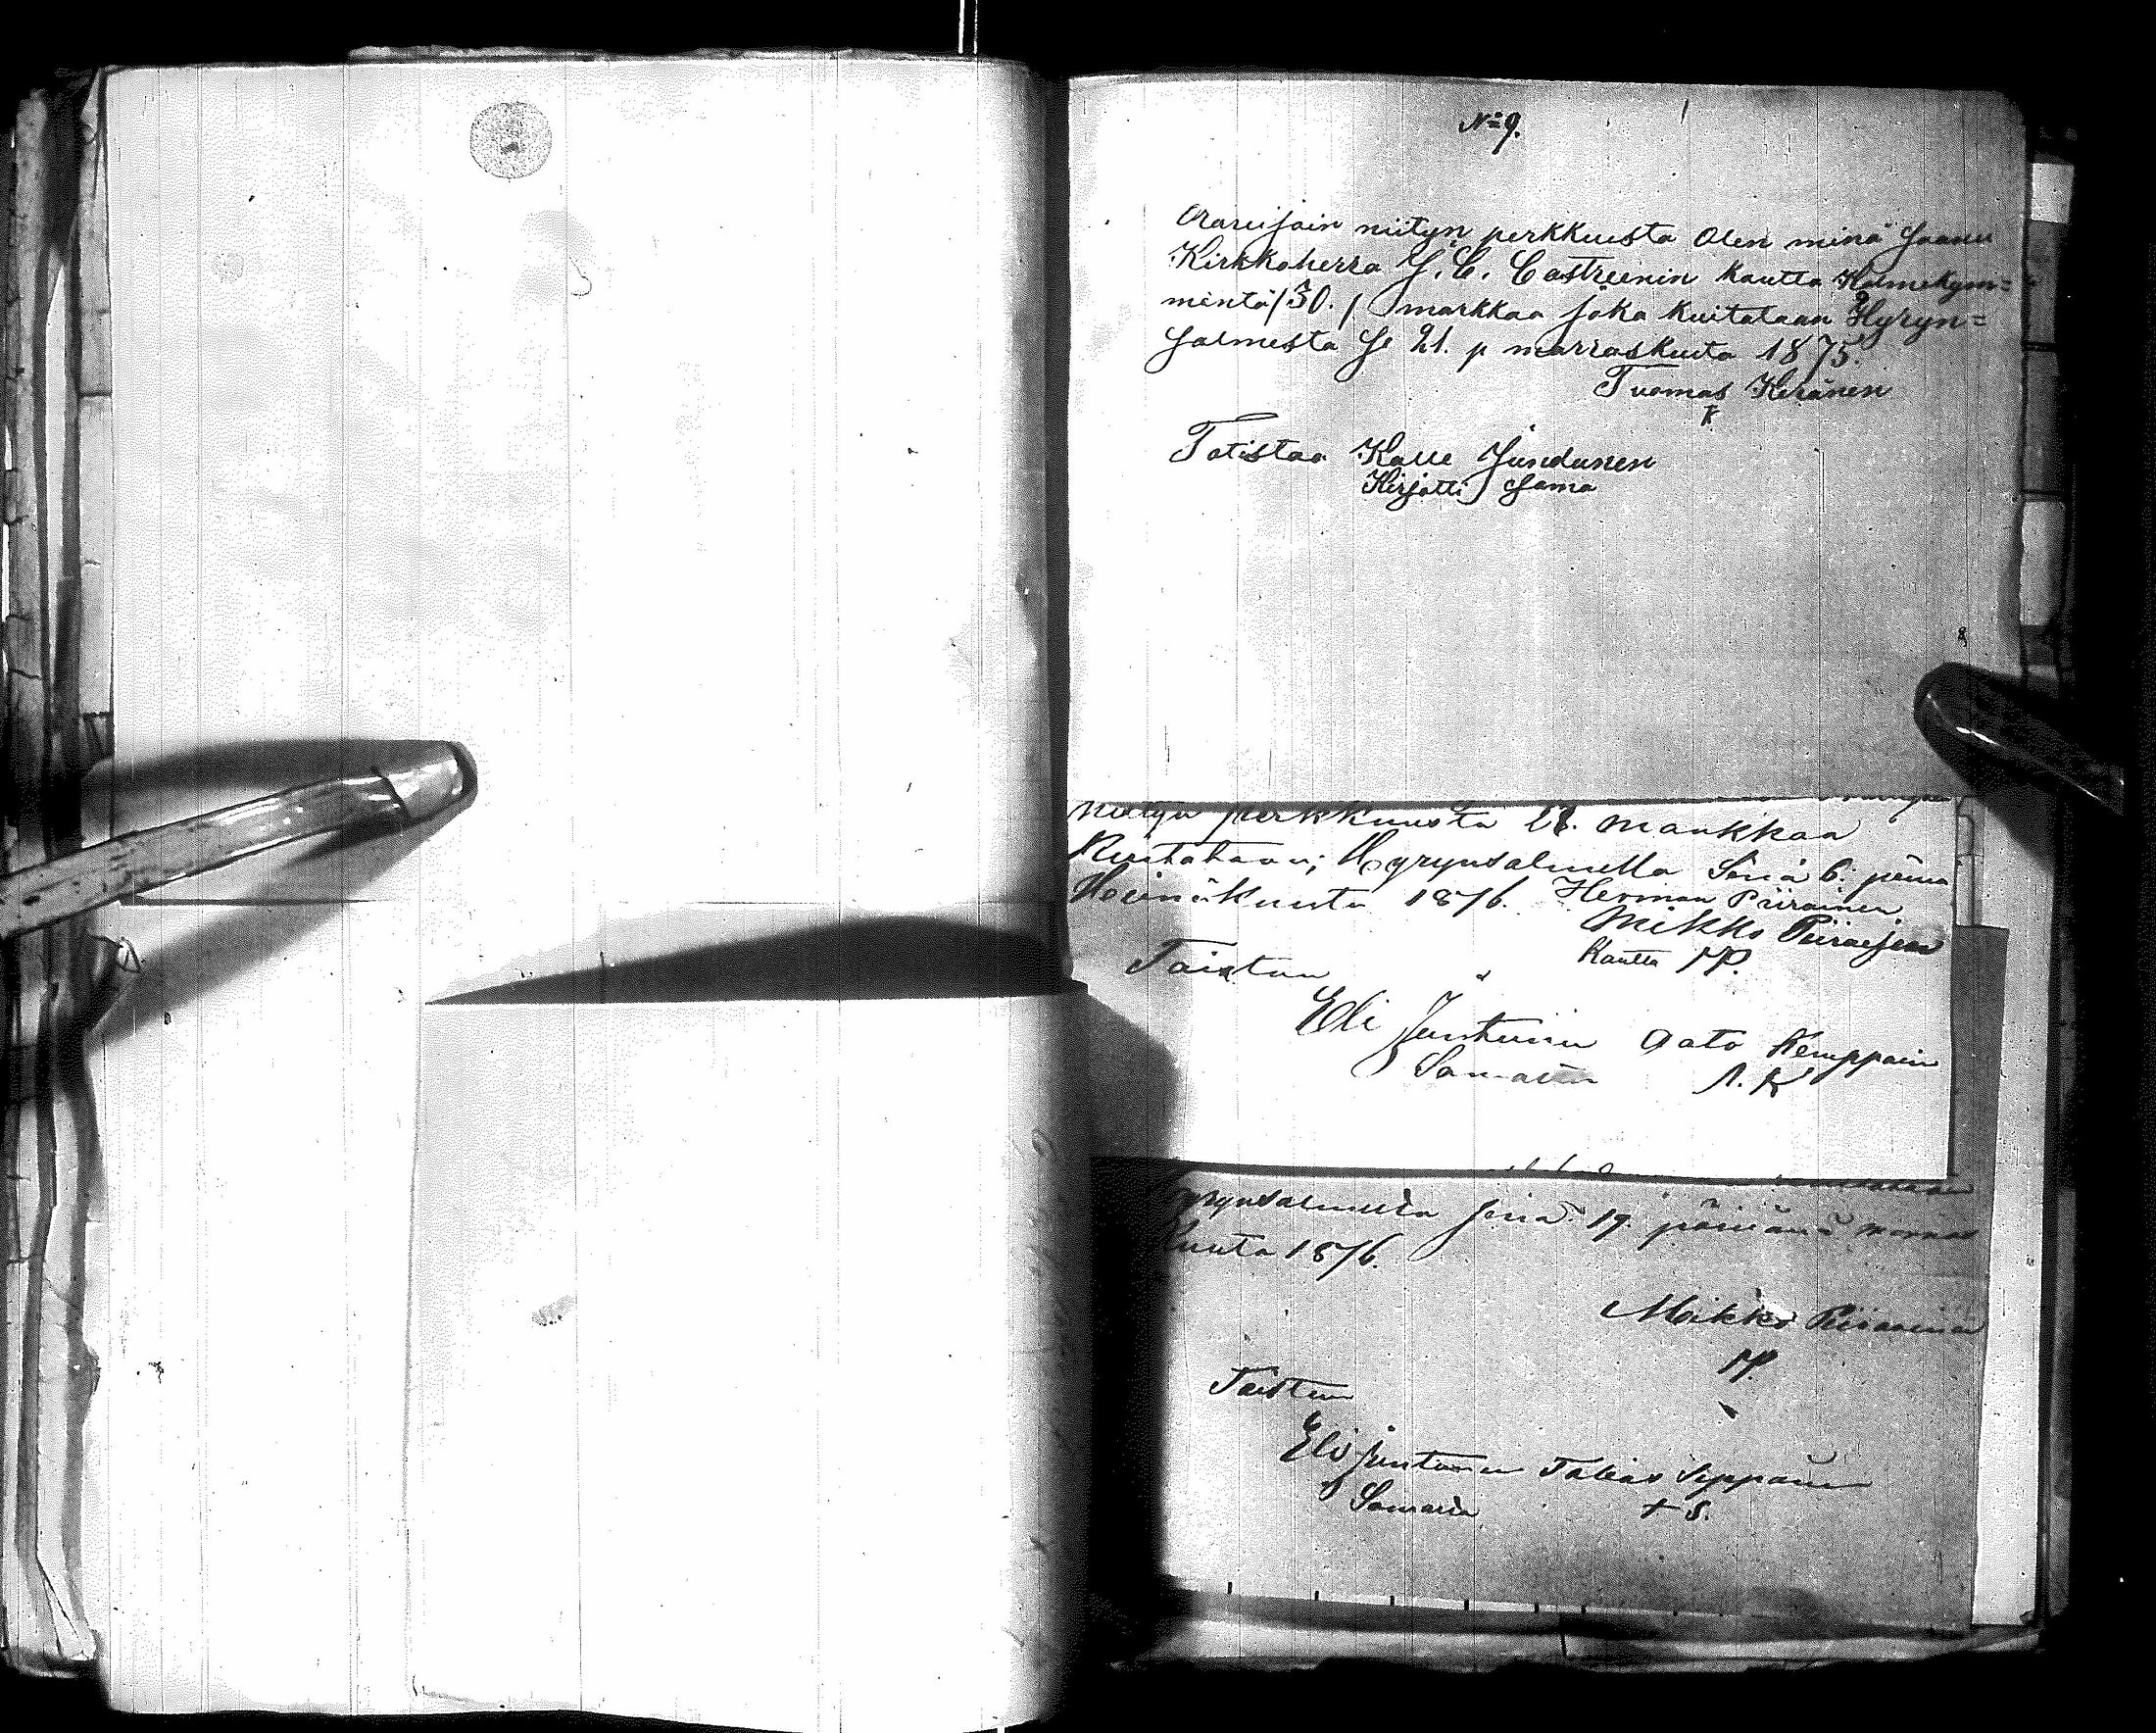 No 9.
Oravijoin niityn perkkuusta Olen minä Saanu
Kirkkoherra J. C. Castreenin kautta Kolmekym=
mentä /30./ markkaa joka kuitataan Hyryn=
Salmesta Se 21. p marraskuuta 1875.
Tuomas Keränen
K
Totistaa Kalle Jundunen
Kirjotti Sama
niityn perkkuusta markkaa
Kuitataan; Hyrynsalmella Sinä 6: päinä
Heinäkuuta 1876. Herman Piirainen
Mikko Piiraisen
Kautta MP.
Toistaa
Eli Juntunen Aato Kemppain
Samasta A. K
Hyrynsalmella Sinä 19. päivänä marras
kuuta 1876.
Mikko Piirainen
MP.
Toistaa
Eli Juntunen Tobias Seppänen
Samasta + S.